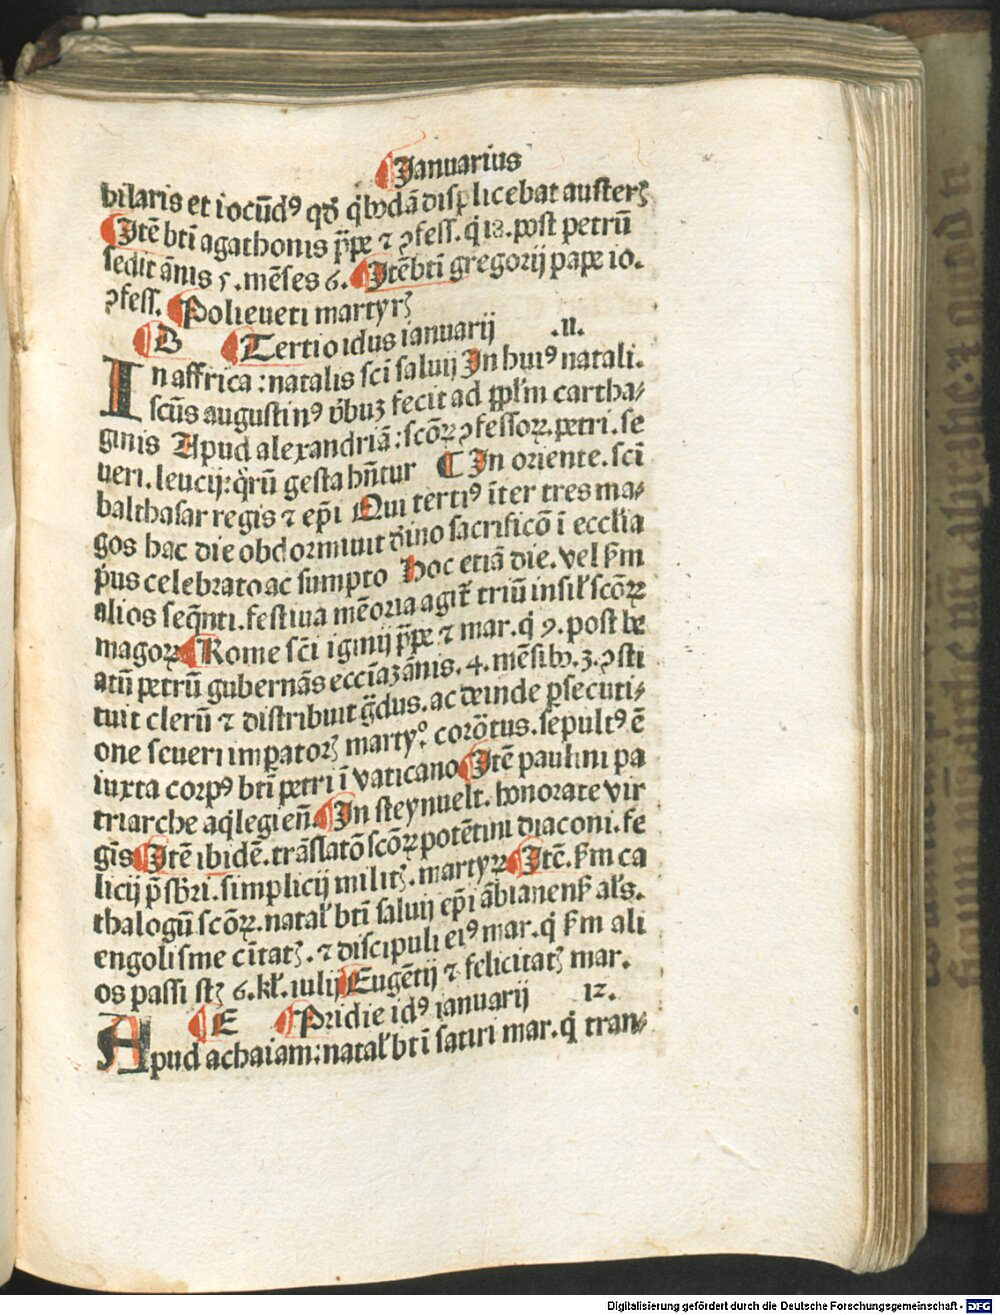 Januarius
hilaris et iocũdꝰ qđ q̇bꝰdã displicebat austerꝫ
Itẽ bti agathonis ṗpe ⁊ ꝯfess. q̇ 12. post petrũ
sedit ãnis 5. mẽses 6. Itẽ bti gregorij pape 10.
ꝯfess. Polieueti martyrꝫ
B Tertio idus ianuarij .11.
In affrica: natalis sci saluij In huiꝰ natali.
scũs augustinꝰ v̾buʒ fecit ad ppl'm cartha⸗
ginis Apud alexandriã: scõꝝ ꝯfessoꝝ. petri. se
ueri. leucij: q̃rũ gesta hñtur In oriente. sci
balthasar regis ⁊ ep̃i Qui tertiꝰ iter tres ma⸗
gos hac die obdormiuit diuino sacrificõ ĩ eccl'ia
p̾us celebrato ac sumpto Hoc etiã die. vel s̾m
alios seq̃nti. festiua mẽoria agit̃ triũ insil' scõꝝ
magoꝝ Rome sci iginij ṗpe ⁊ mar. q̇ 9. post be
atũ petrũ gubernãs eccĩaʒ ãnis. 4. mẽsibꝰ. 3. ꝯsti
tuit clerũ ⁊ distribuit g̃dus. ac deinde ꝑsecuti⸗
one seueri impatorꝫ martyꝰ corõtus. sepultꝰ ẽ
iuxta corpꝰ bti petri ĩ vaticano Itẽ paulini pa
triarche aq̇legieñ. In steynuelt. honorate vir
gĩs Itẽ ibidẽ. trãslatõ scõꝝ potẽtini diaconi. fe
licij p̃sb̾ri. simplicij militꝫ. martyꝝ Itẽ. s̾m ca
thalogũ scõꝝ. natal' bti saluij ep̃i ãbianens̾ al's.
engolisme citatꝫ. ⁊ discipuli eiꝰ mar. q̇ s̾m ali
os passi stꝫ 6. kl'. iulij Eugẽij ⁊ felicitatꝫ mar.
E Pridie idꝰ ianuarij 12.
Apud achaiam: natal' bti satiri mar. q̇ tran⸗
Digitalisierung gefördert durch die Deutsche Forschungsgemeinschaft - DFG